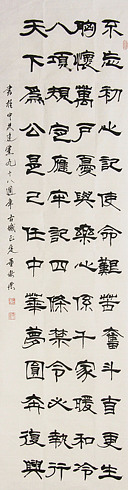 不忘初心記使命艱苦奮斗自更生
胸懷萬戶憂與樂心係千家暖和冷
八項規定應牢記四條禁令必執行
天下為公是己任中華夢圓奔復興
書於中共建党九十八週年古城正定